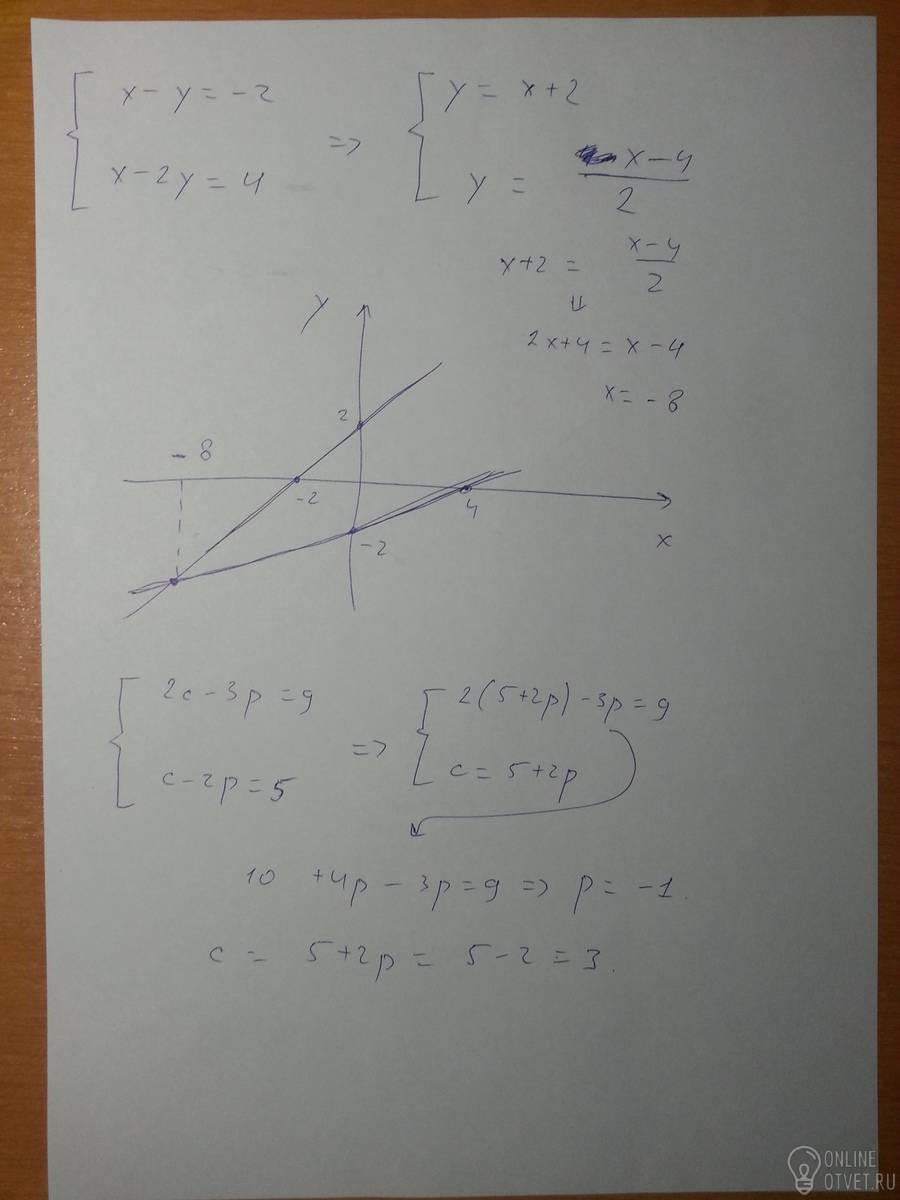 x - y = -2 => y = x + 2
x - 2y = 4 y = x - 4 / 2
x + 2 = x - 4 / 2
2x + 4 = x - 4
x = -8
y
2
-8
-2
4
-2
x
2c - 3p = 9 => 2(5 + 2p) - 3p = 9
c - 2p = 5 c = 5 + 2p
10 + 4p - 3p = 9 => p = -1.
c = 5 + 2p = 5 - 2 = 3.
ONLINE
OTVET.RU